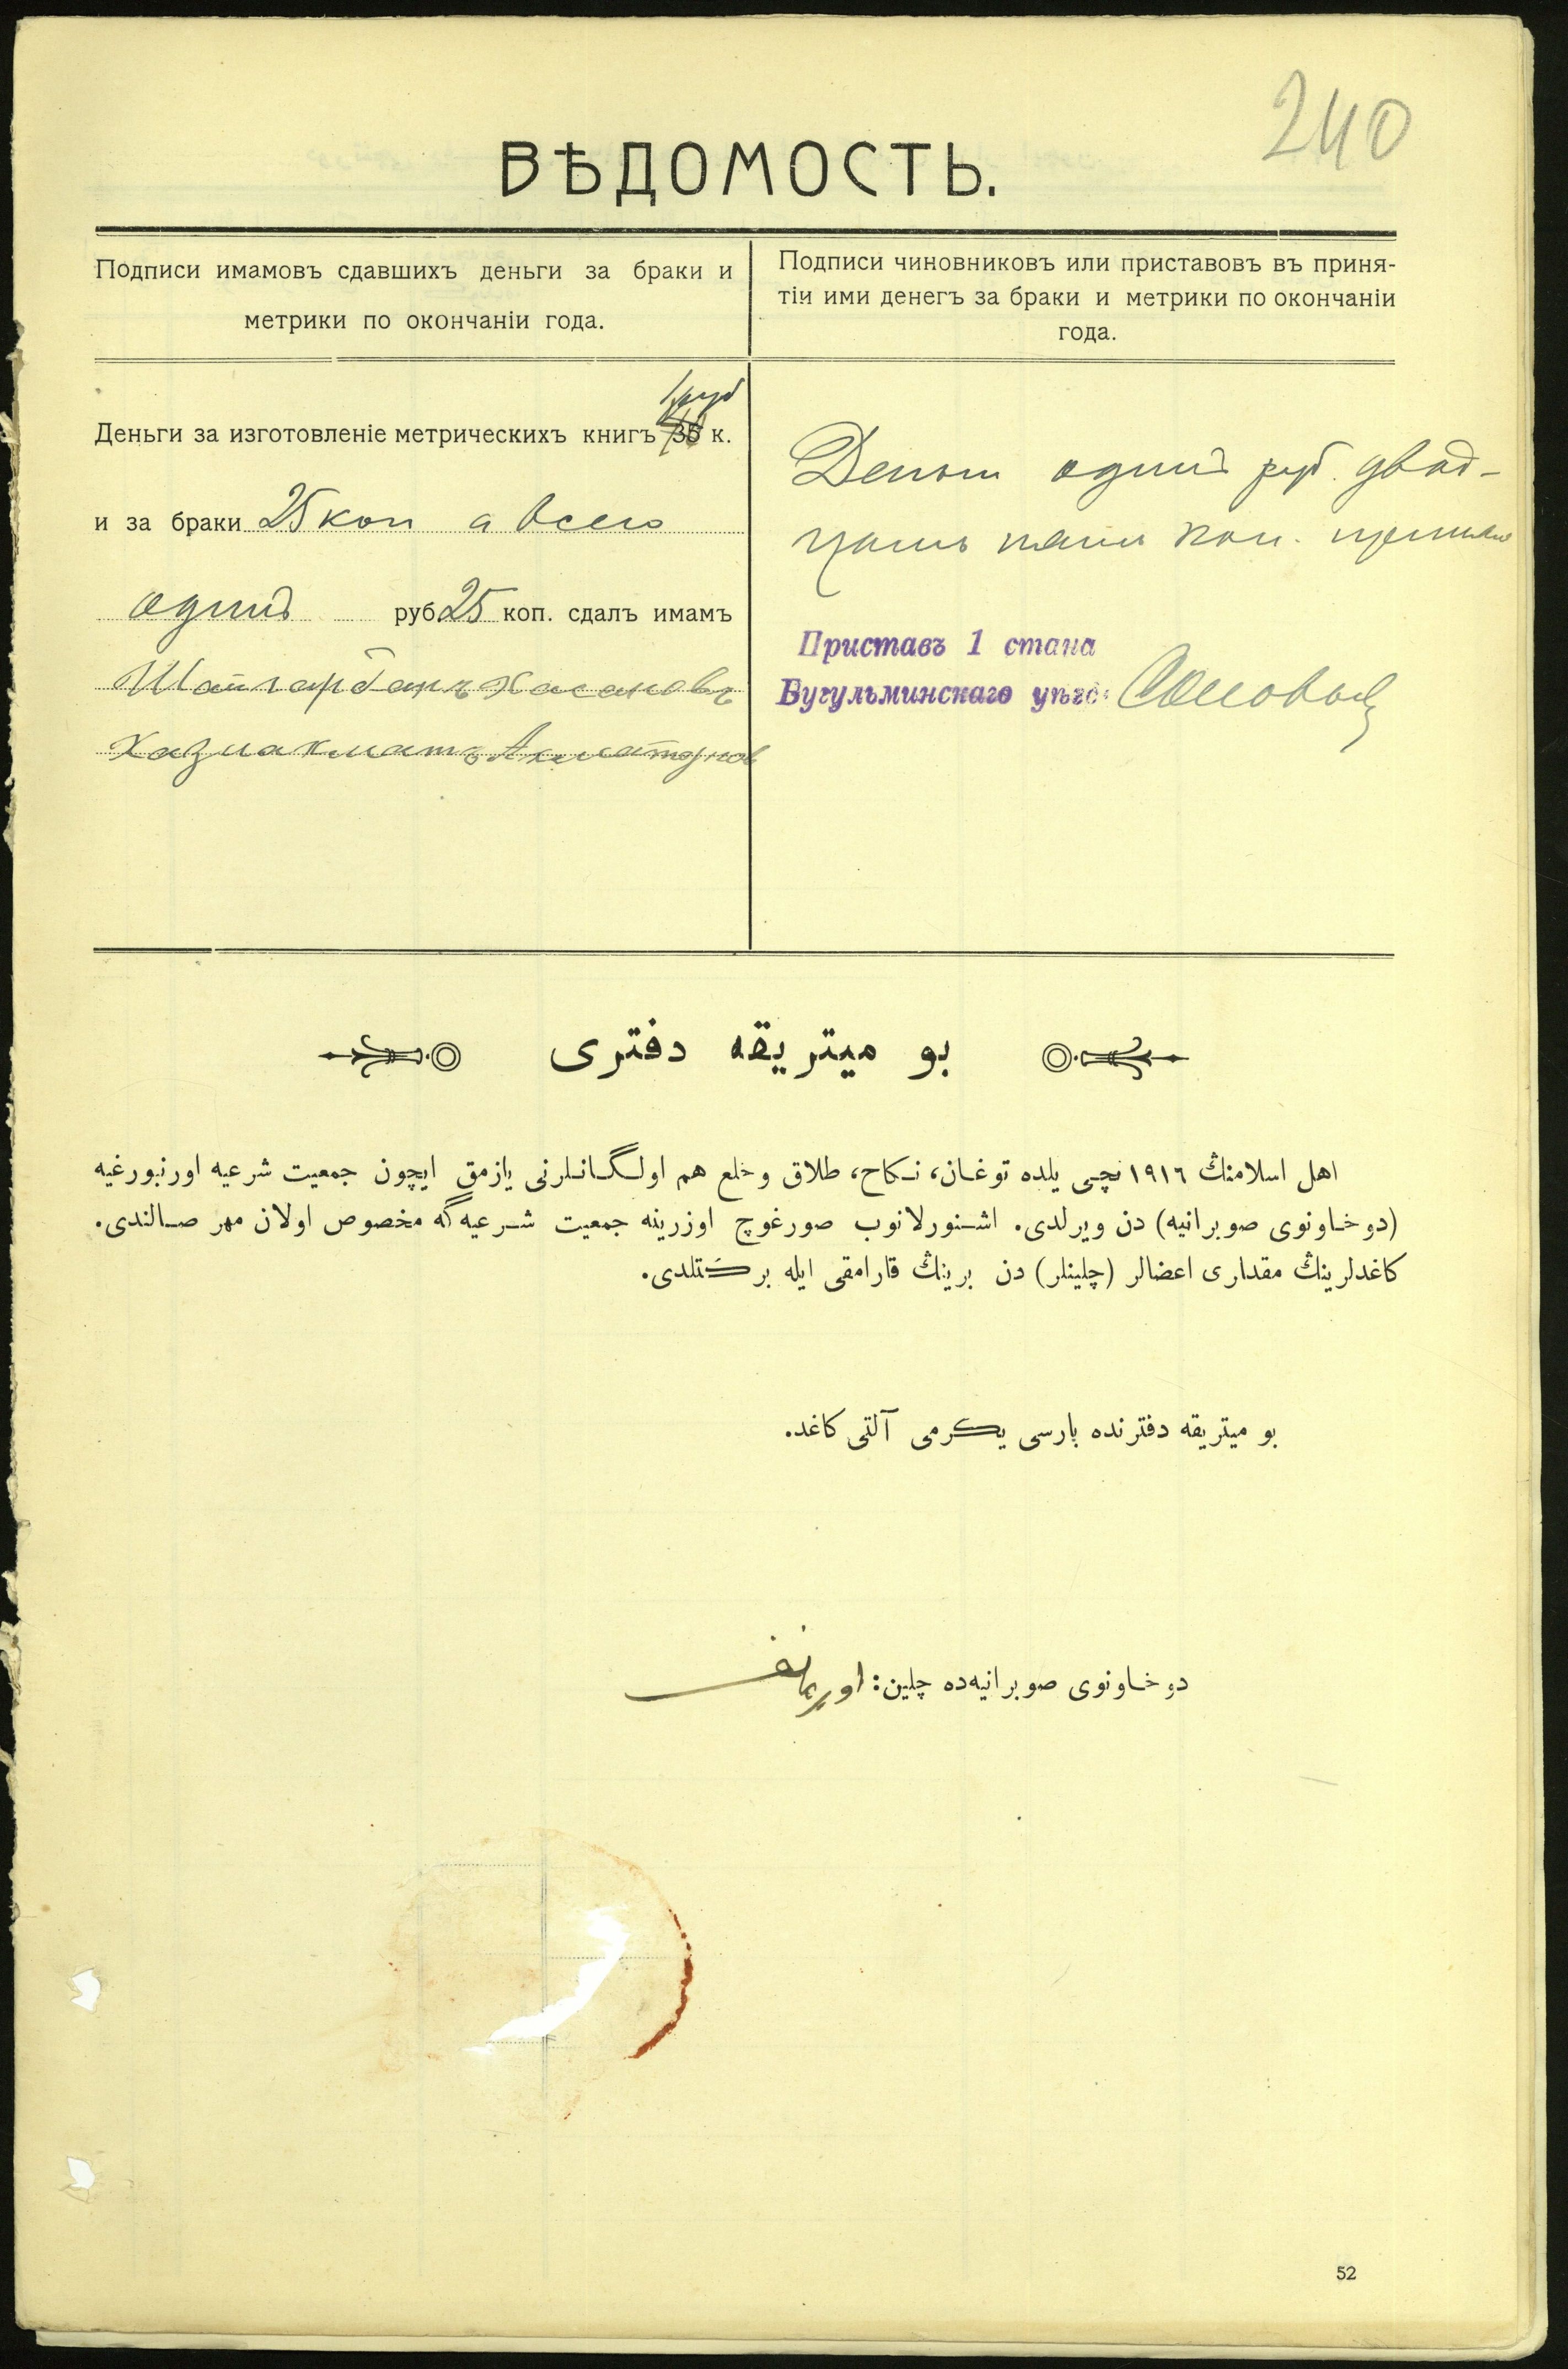 240
ВѢДОМОСТЬ.
Подписи имамовъ сдавшихъ деньги за браки и
метрики по окончаніи года.
Подписи чиновниковъ или приставовъ въ приня-
тіи ими денегъ за браки и метрики по окончаніи
года.
1 руб
Деньги за изготовленіе метрическихъ книгъ 35 к.
и за браки 25 коп а всего
одинъ руб 25 коп. сдалъ имамъ
Хасановъ
Деньги одинъ руб. двад-
цать пять коп. принялъ
Приставъ 1 стана
Бугульминскаго уѣзд
بو ميتريقه دفترى
اهل اسلامنڭ ١٩١٦ نچى يلده توغان، نكاح، طلاق وخلع هم اولگانلرنى يازمق ايچون جمعيت شرعيه اورنبورغيه
(دوخاونوى صوبرانيه) دن ويرلدى. اشنورلانوب صورغوچ اوزرينه جمعيت شرعيه‌گه مخصوص اولان مهر صالندى.
كاغدلرينڭ مقدارى اعضالر (چلينلر) دن برينڭ قارامقى ايله بركتلدى.
بو ميتريقه دفترنده بارسى يكرمى آلتى كاغد.
دوخاونوى صوبرانيه‌ده چلين:
52